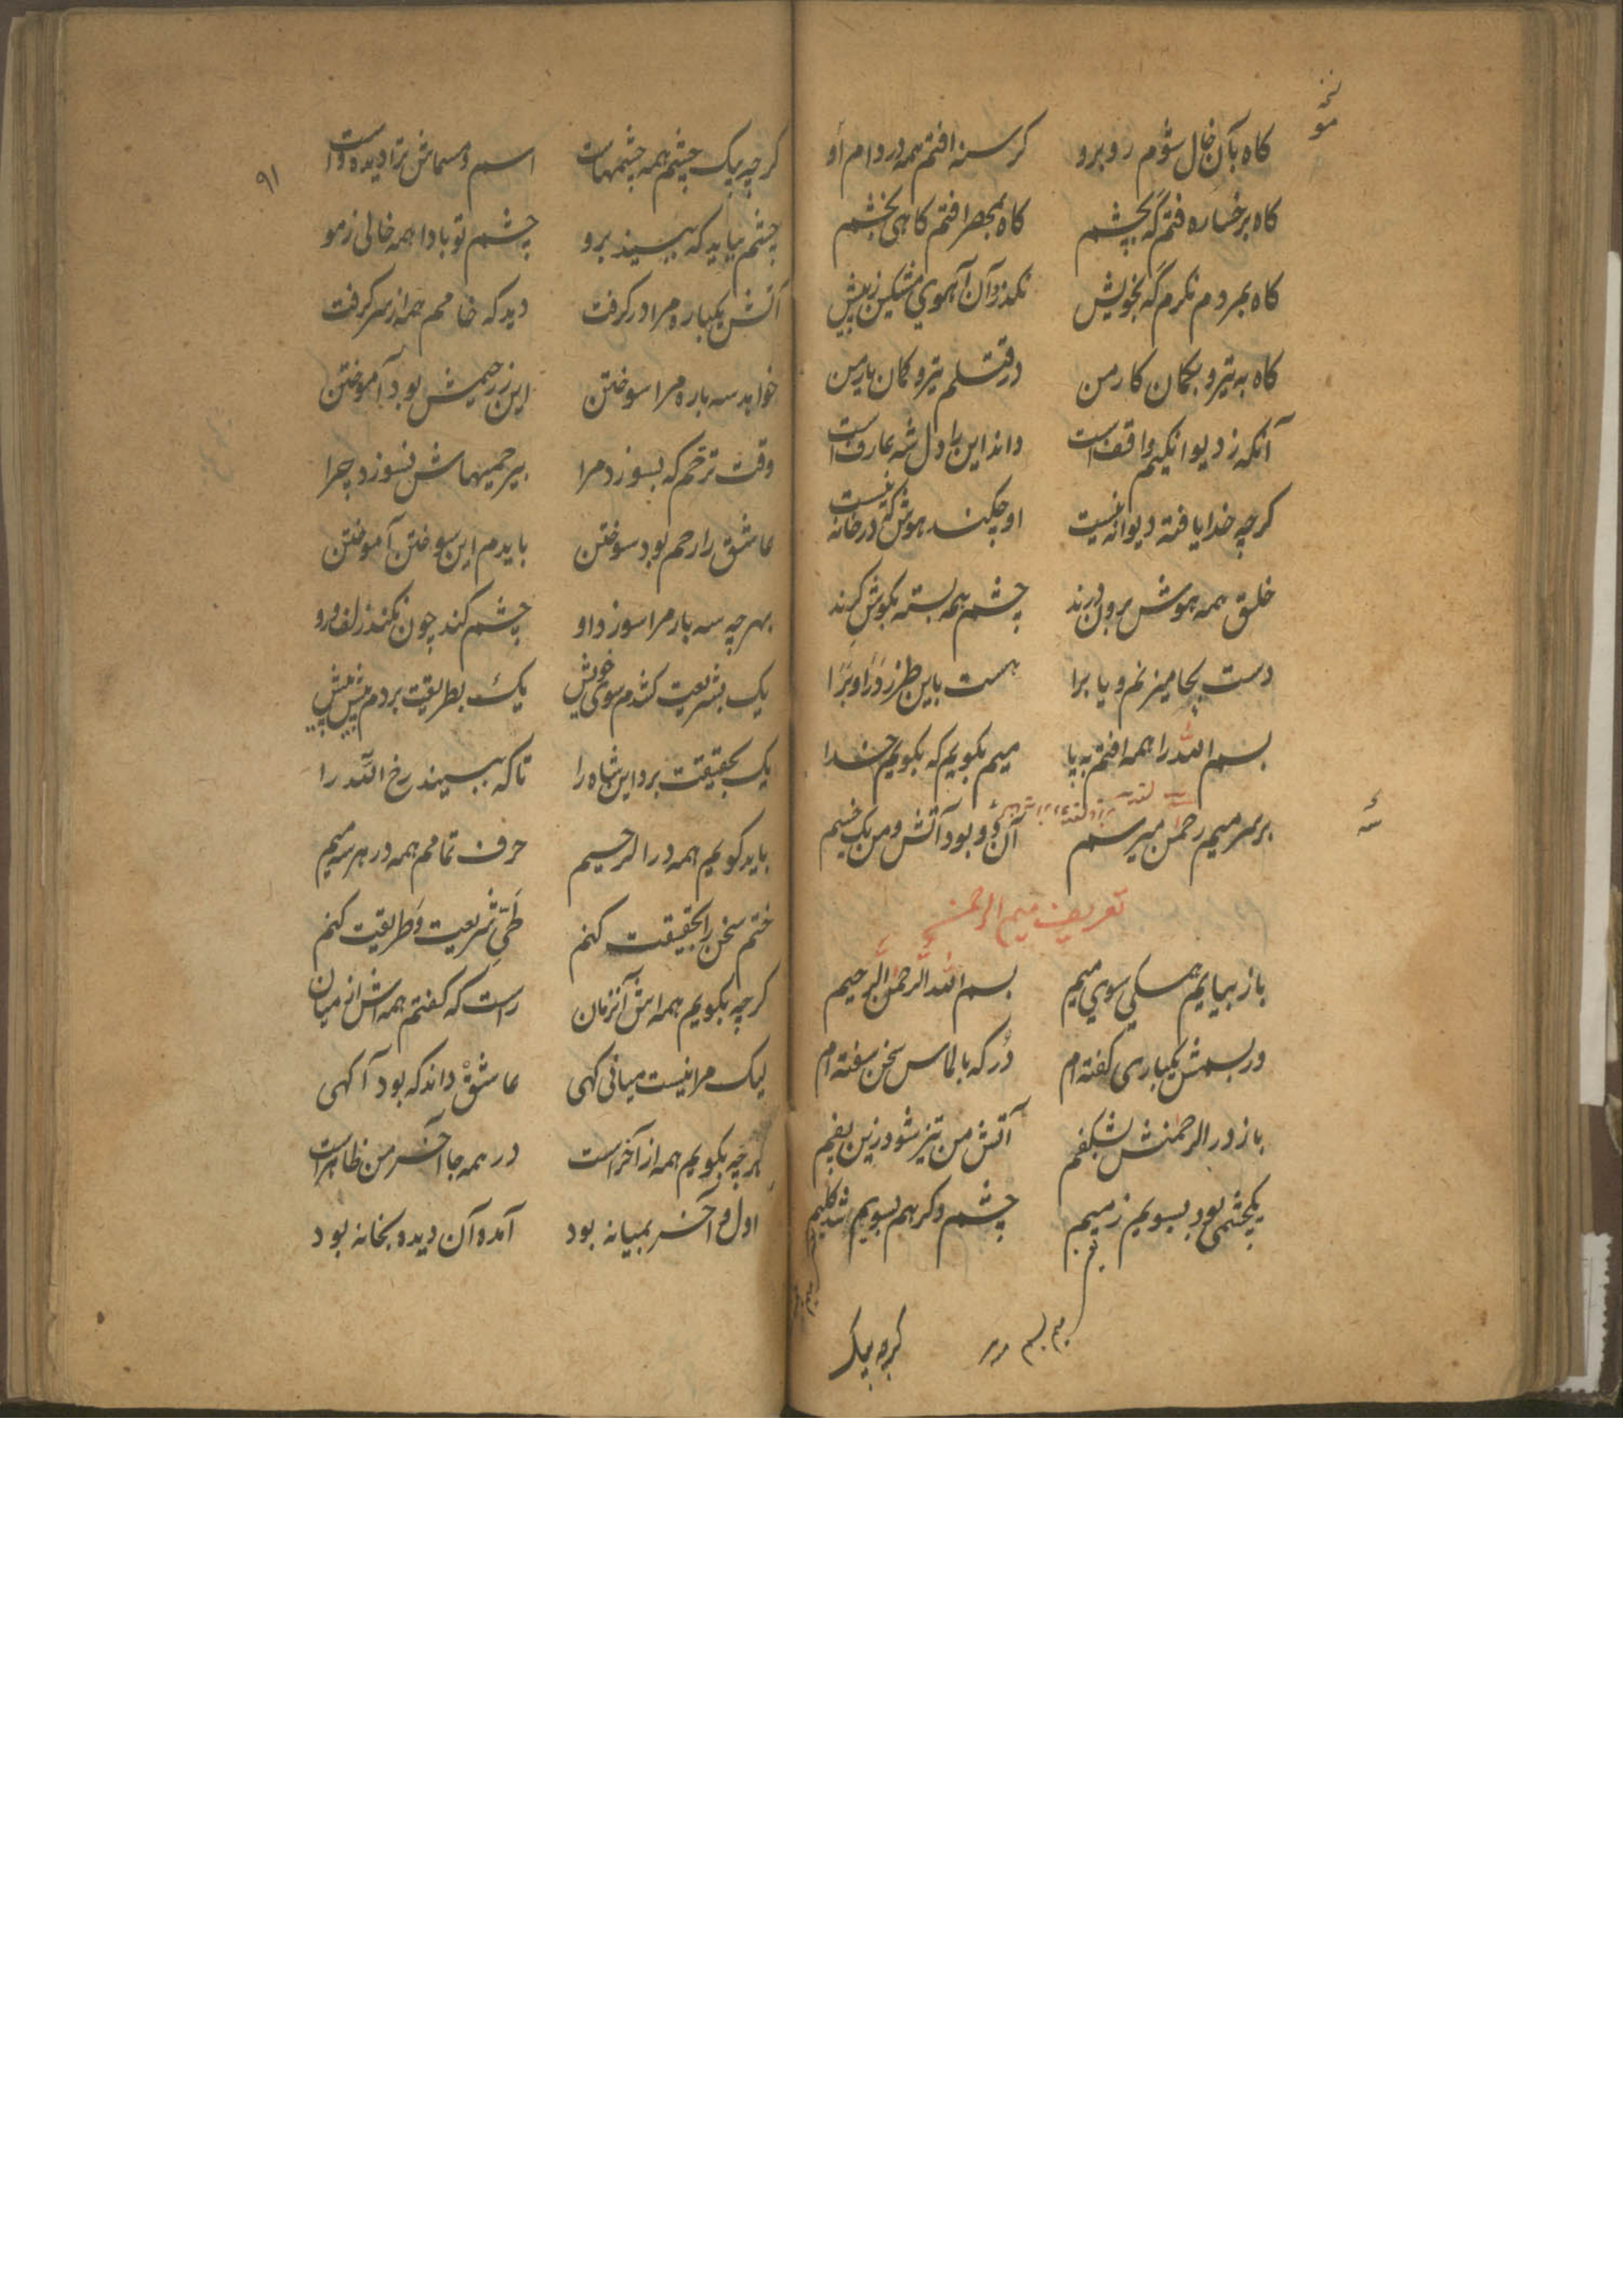 نخه
مو
کاه بآن خال شوم روبرو کرسنه افتم همه در دام او
کاه برخساره فتم که بچشم کاه بمحرا فتم کاهی بخشم
کاه بمردم نکرم که بخویش نکذرد آن آهوی مشکین ز پیش
کاه به تیر و بکمان کار من در قتلم تیر و کمان یار من
آنکه ز دیوانکیم واقفست داند این را دل شه عارفست
کرچه خدا یافته دیوانه نیست او چکند هوش که در خانه نیست
خلق همه هوش برون درند چشم همه بسته بکوش کرند
دست بجا میزنم و پا برا هست باین طرز درا و برا
بسم الله را همه افتم به پا میم بکویم که بکویم خدا
بر سر میم رحمن میرسم آن دو بود آتش و من یک خسیم
تعریف میم الرحمن
باز بیایم همکی سوی میم بسم الله الرحمن الرحیم
در بسمش یکباری کفته ام در که بالماس سخن سفته ام
باز در الرحمنش بشکفم آتش من تیز شود زین یفم
یکچشمی بود بسویم ز میم چشم دکر هم بسویم شد کلیم
میم بسم
کرچه بیک
۹۱
کرچه بیک چشم همه چشمهاست اسم و مسماش ترا دیده واست
چشم بیاید که ببیند برو چشم تو بادا همه خالی ز مو
آتش یکباره مرا در کرفت دید که خامم همه از سر کرفت
خواهد سه باره مرا سوختن این ز رحیمش بود آموختن
وقت ترحم که بسوزد مرا بیرحمیهاش نسوزد چرا
عاشق را رحم بود سوختن بایدم این سوختن آموختن
بهر چه سه بار مرا سوزد او چشم کند چون نکند زلف و رو
یک بشریعت کشدم سوی خویش یک بطریقت بردم پیش پیش
یک بحقیقت برد این شاه را تا که ببیند رخ الله را
باید کویم همه در الرحیم حرف تمامم همه در هر سه میم
ختم سخن را بحقیقت کنم طی شریعت و طریقت کنم
کرچه بکویم همه اش آنزمان راست که کفتم همه اش از میان
لیک مرا نیست میانی کهی عاشق داند که بود آکهی
هرچه بکویم همه از آخر است در همه جا آخر من ظاهر است
اول و آخر بمیانه بود آمده آن دیده بخانه بود